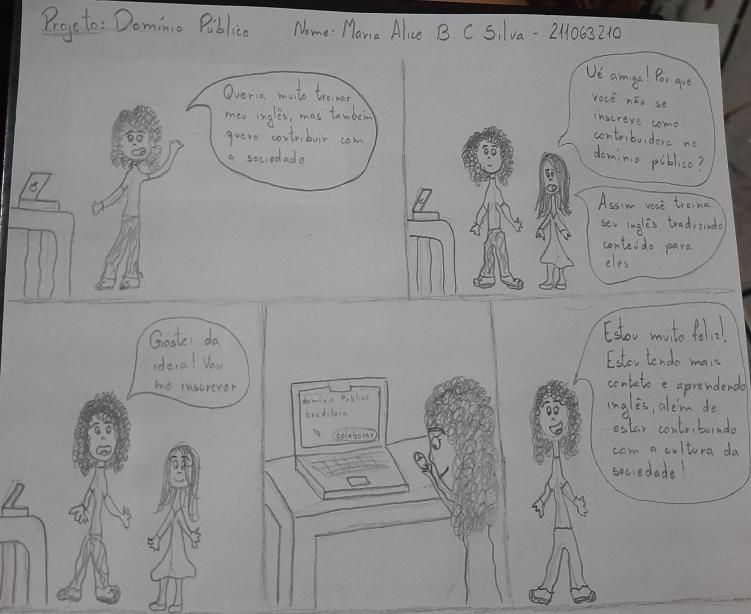 Projeto: Domínio Público Nome: Maria Alice B. C Silva - 211063210
Queria muito treinar
meu inglês, mas também
quero contribuir com
a sociedade
Ué amiga! Por que
você não se
inscreve como
contribuidora no
domínio público?
Assim você treina
seu inglês traduzindo
conteúdo para
eles
Gostei da
ideia! Vou
me inscrever
domínio Público
tradutora
colaborar
Estou muito feliz!
Estou tendo mais
contato e aprendendo
inglês, além de
estar contribuindo
com a cultura da
sociedade!